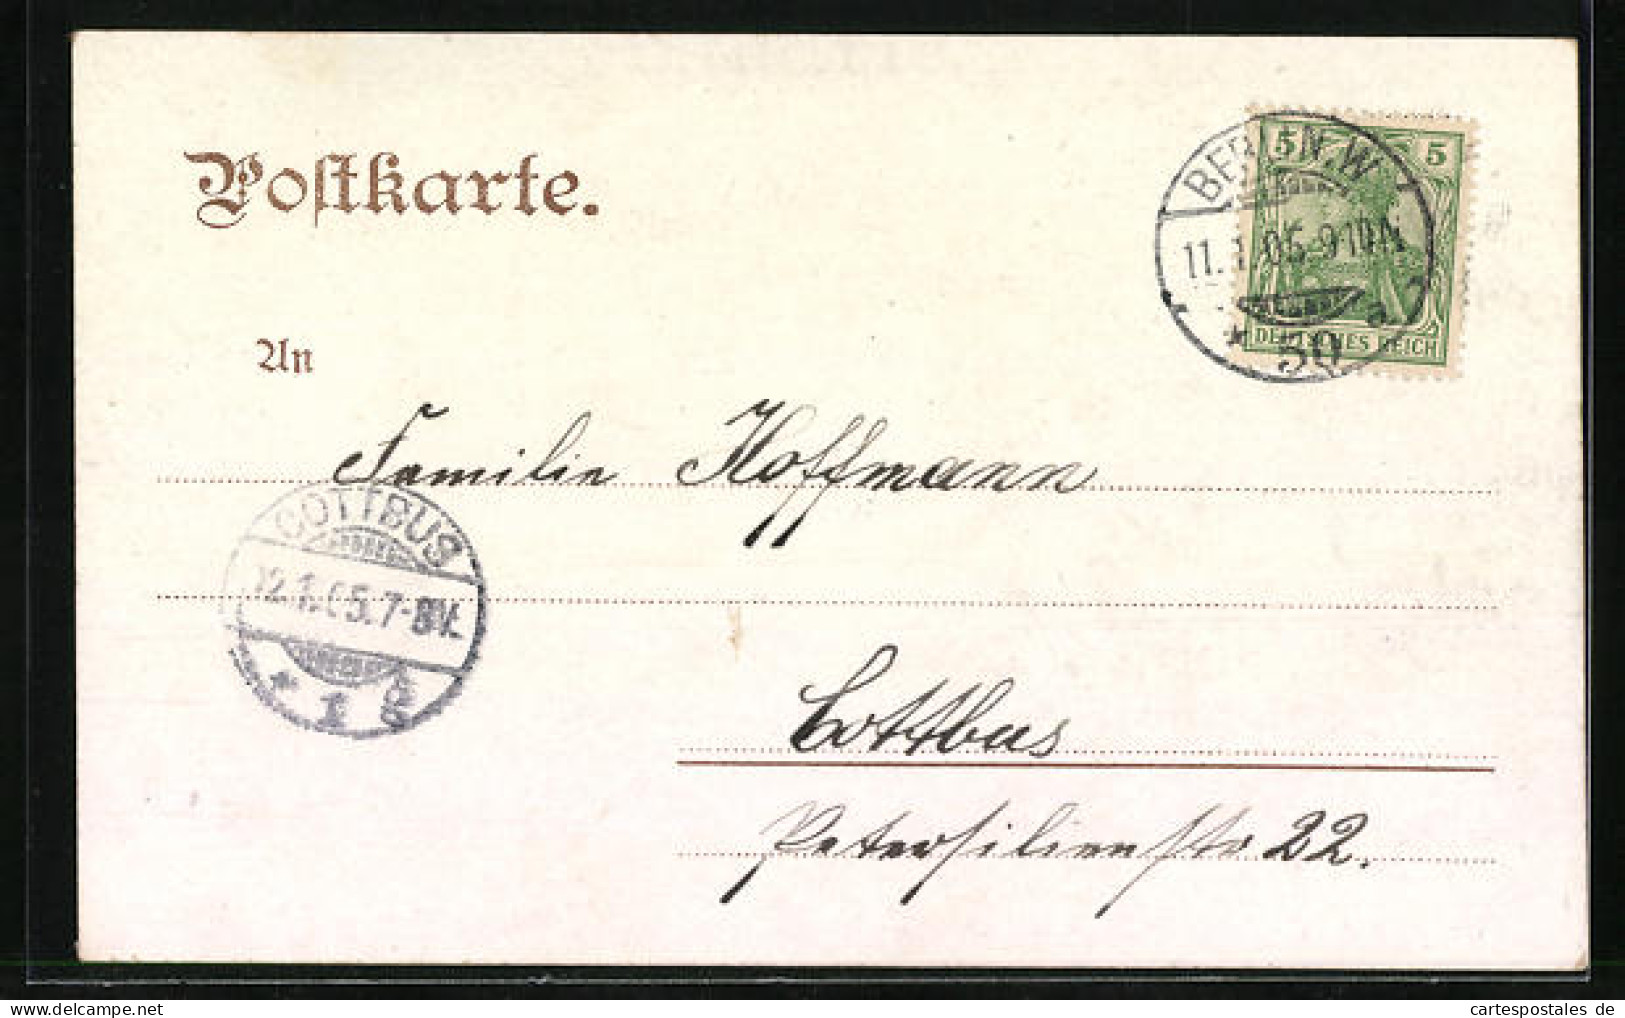 Postkarte.
5 5
BERLIN. W
11. 1. 05. 9-10 N.
* 50 a.
DEUTSCHES REICH
An
Familie Hoffmann
COTTBUS
12. 1. 05. 7-8 V.
* 1
Cottbus
Petersilienstr 22.
cartespostales de